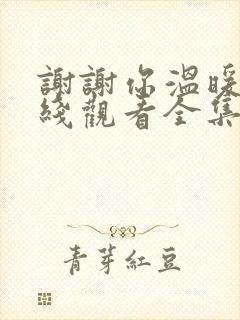 謝謝你溫暖
綫觀看全集
青芽紅豆